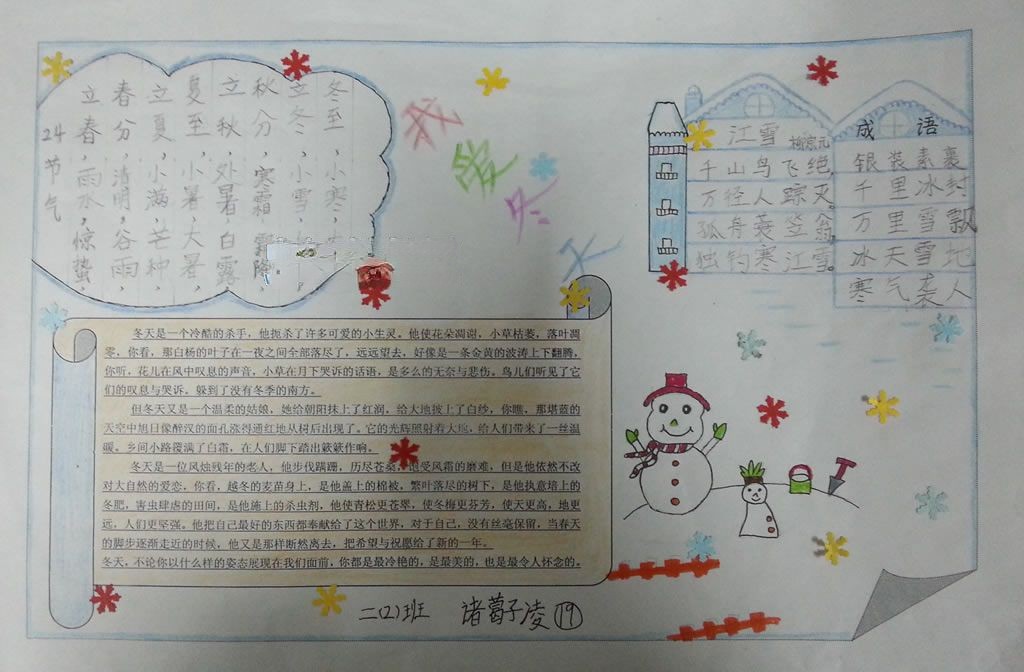 24节气
立春，雨水，惊蛰，
春分，清明，谷雨，
立夏，小满，芒种
夏至，小暑，大暑，
立秋，处暑白露
秋分，寒霜 霜降
立冬，小雪，
冬至，小寒，
我爱冬天
江雪
柳宗元
千山鸟飞绝，
万径人踪灭。
孤舟蓑笠翁，
独钓寒江雪。
成 语
银装素裹
千里冰封
万里雪飘
冰天雪地
寒气袭人
冬天是一个冷酷的杀手，他扼杀了许多可爱的小生灵。他使花朵凋谢，小草枯萎，落叶凋
零，你看，那白杨的叶子在一夜之间全部落尽了，远远望去，好像是一条金黄的波涛上下翻腾，
你听，花儿在风中叹息的声音，小草在月下哭诉的话语，是多么的无奈与悲伤。鸟儿们听见了它
们的叹息与哭诉。躲到了没有冬季的南方。
但冬天又是一个温柔的姑娘，她给朝阳抹上了红润，给大地披上了白纱，你瞧，那堪蓝的
天空中旭日像醉汉的面孔涨得通红地从树后出现了。它的光辉照射着大地，给人们带来了一丝温
暖。乡间小路覆满了白霜，在人们脚下踏出簌簌作响。
冬天是一位风烛残年的老人，他步伐蹒跚，历尽苍桑，饱受风霜的磨难，但是他依然不改
对大自然的爱恋，你看，越冬的麦苗身上，是他盖上的棉被，繁叶落尽的树下，是他执意培上的
冬肥，害虫肆虐的田间，是他施上的杀虫剂，他使青松更苍翠，使冬梅更芬芳，使天更高，地更
远，人们更坚强。他把自己最好的东西都奉献给了这个世界，对于自己，没有丝毫保留，当春天
的脚步逐渐走近的时候，他又是那样断然离去，把希望与祝愿给了新的一年。
冬天，不论你以什么样的姿态展现在我们面前，你都是最冷艳的，是最美的，也是最令人怀念的。
二（2）班 诸葛子凌 19